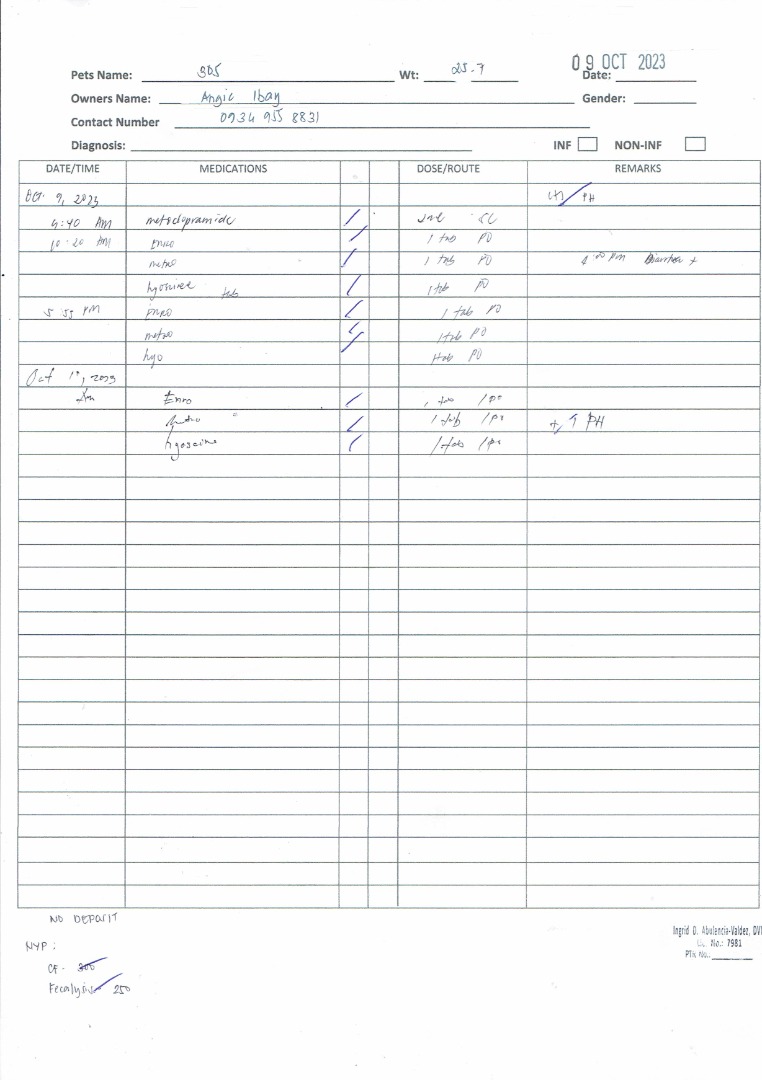 09 OCT 2023
Pets Name: Wt: 25.7 Date:
Owners Name: Angie Ibay Gender:
Contact Number 0934 955 8831
Diagnosis: INF NON-INF
DATE/TIME MEDICATIONS DOSE/ROUTE REMARKS
Oct. 9, 2023 (+) PH
9:40 AM metoclopramide
10:20 AM Enro 1 tab PO
metro 1 tab PO 4:00 PM Diarrhea +
tab 1 tab PO
5:55 PM Enro 1 tab PO
metro 1 tab PO
hyo 1 tab PO
Oct 2023
Am Enro 1 tab / PO
1 tab / PO +, ↑ PH
hyoscine 1 tab / PO
NO DEPOSIT
NYP:
CF - 300
Fecalysis 250
Ingrid D. Abulencia-Valdez, DVM
Lic. No.: 7981
PTR No.: